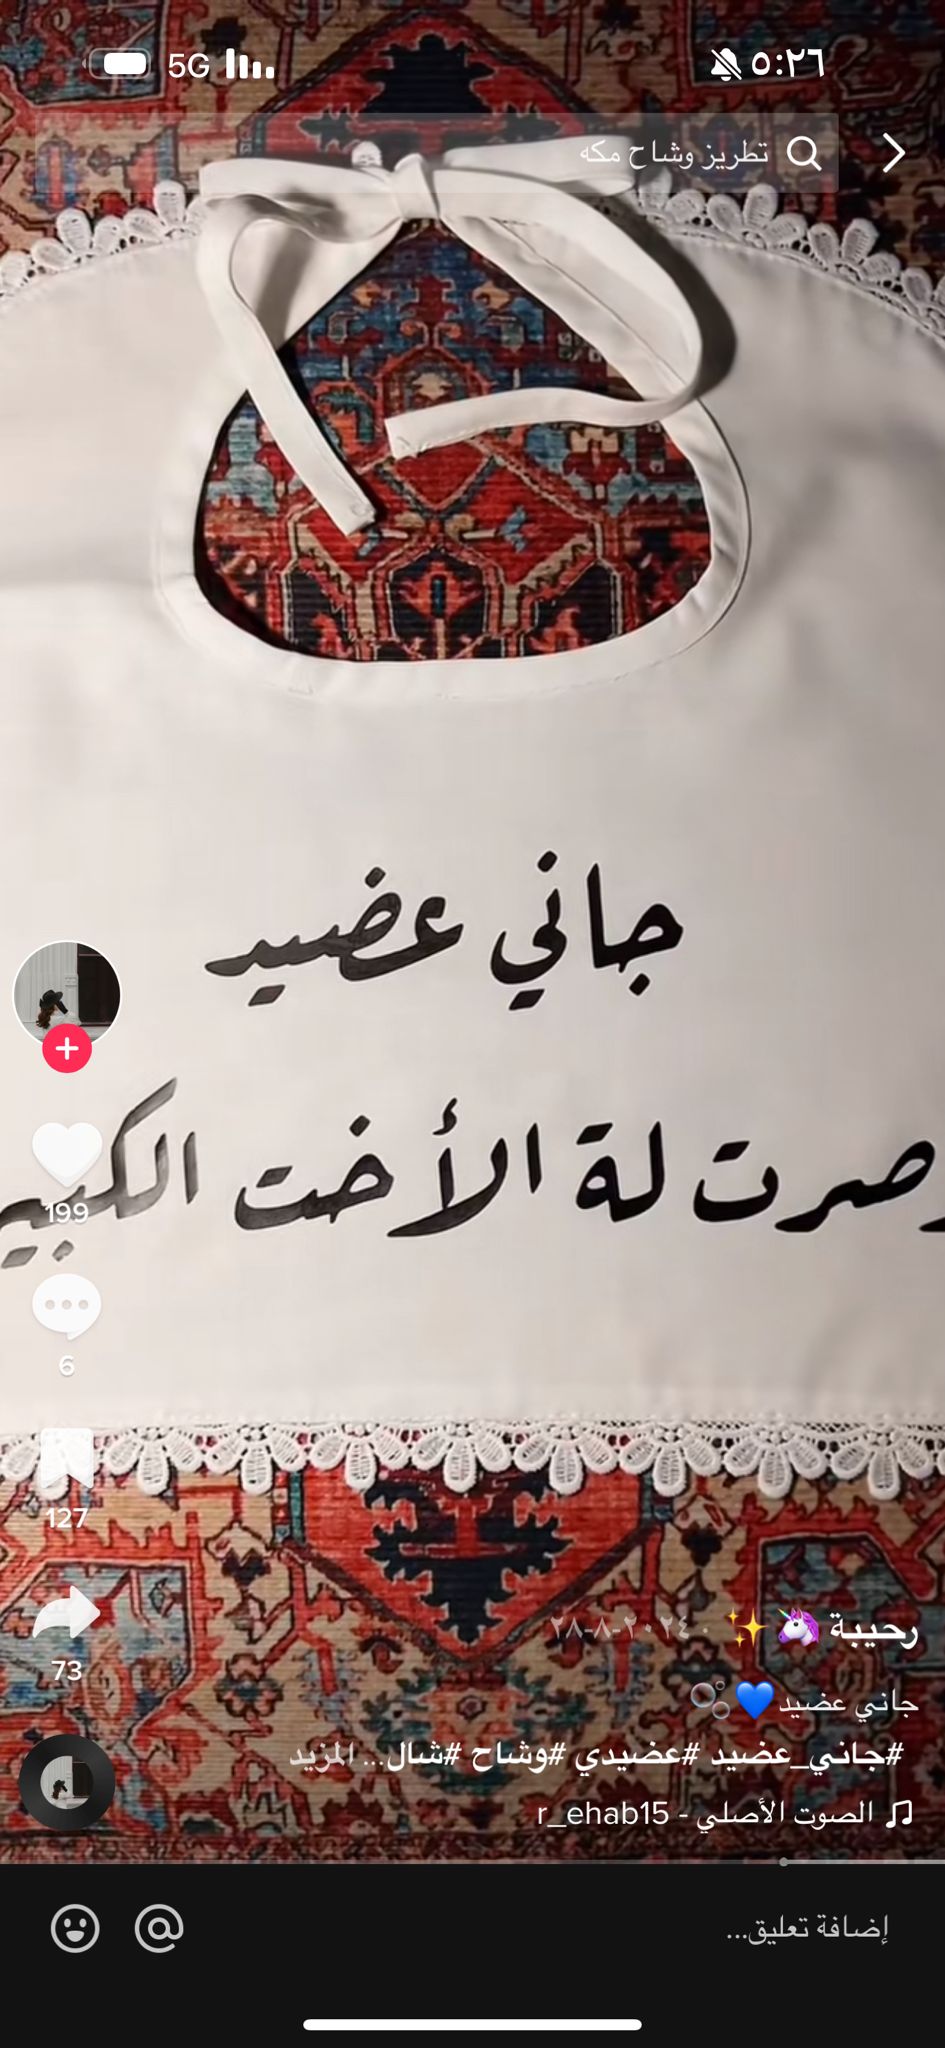 5G ٥:٢٦
تطريز وشاح مكه
جاني عضيد
صرت لة الأخت
199
6
127
73
رحيبة 🦄✨ · ٢٠٢٤-٨-٢٨
جاني عضيد💙🫧
#جاني_عضيد #عضيدي #وشاح #شال... المزيد
الصوت الأصلي - r_ehab15
إضافة تعليق...